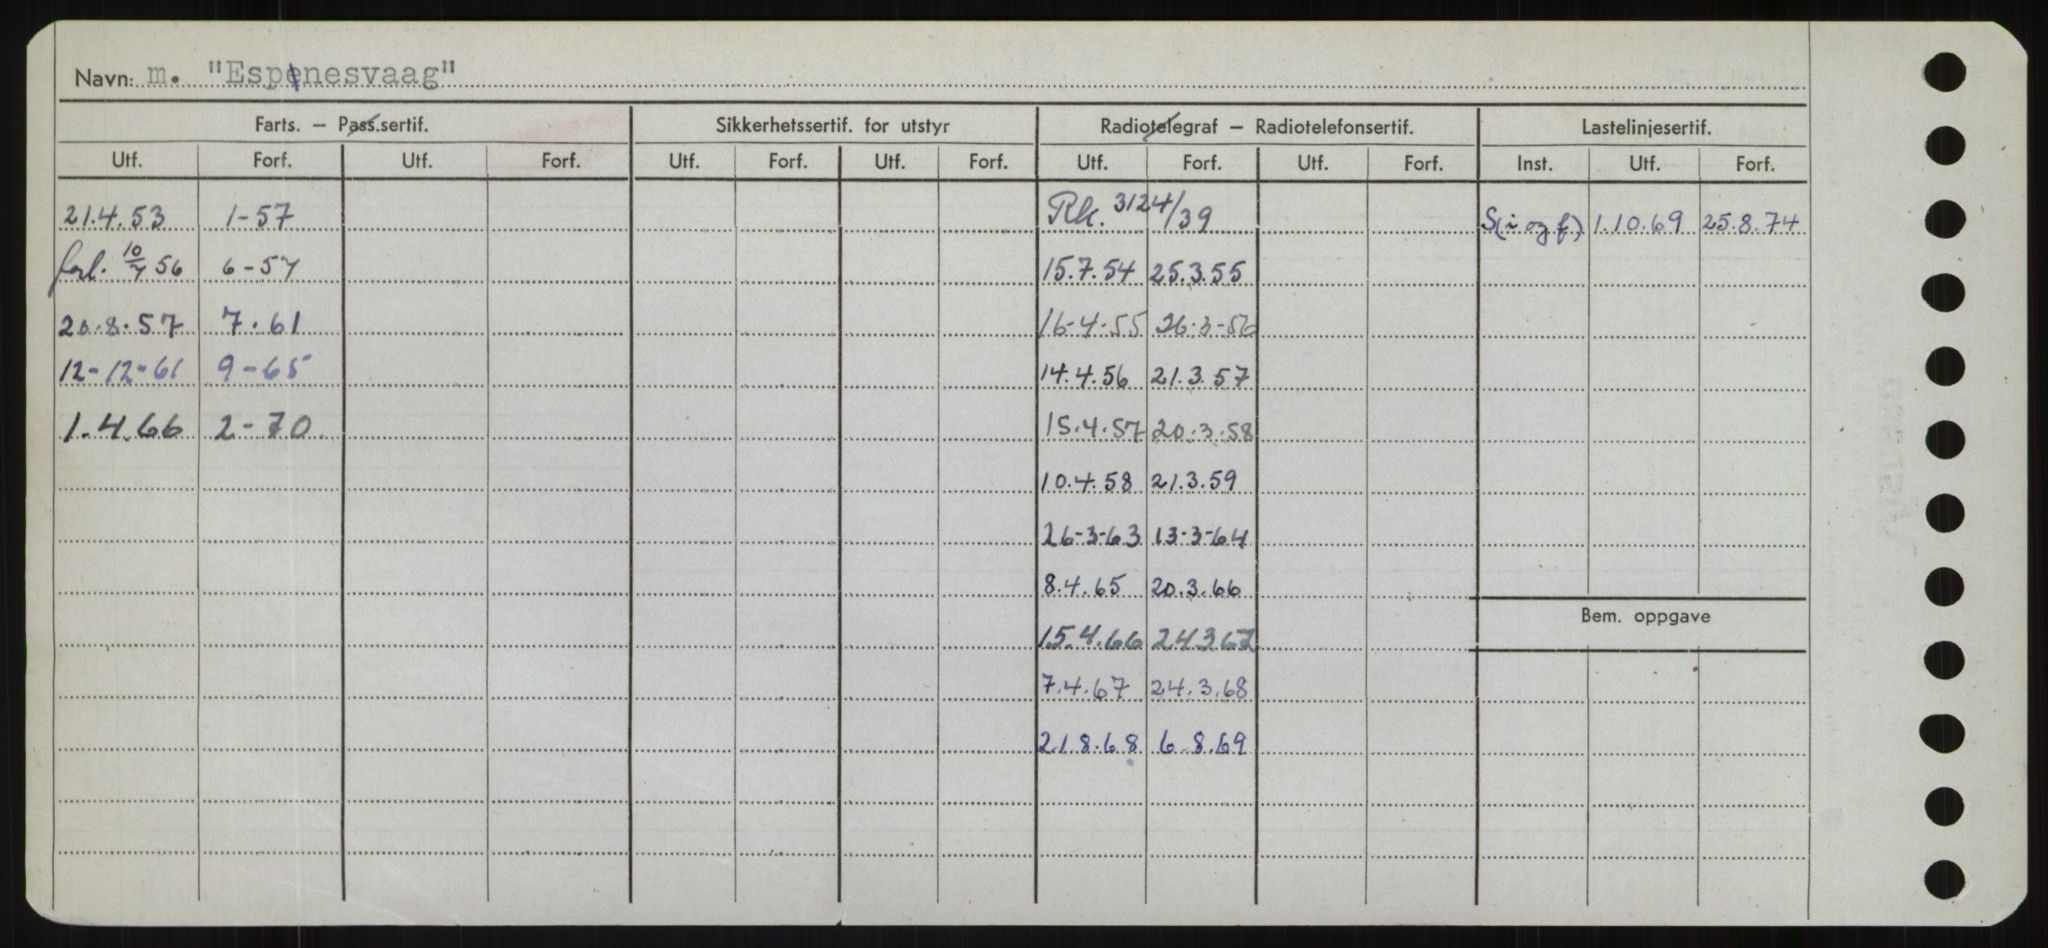 Navn: m. "Espenesvaag"
Farts. – Pass.sertif. Sikkerhetssertif. for utstyr Radiotelegraf – Radiotelefonsertif. Lastelinjesertif.
Utf. Forf. Utf. Forf. Utf. Forf. Utf. Forf. Utf. Forf. Utf. Forf. Inst. Utf. Forf.
21.4.53 1-57 Rk. 3124/39 S(i og f) 1.10.69 25.8.74
forl. 10/7 56 6-57 15.7.54 25.3.55
20.8.57 7.61 16-4-55 26-3-56
12-12-61 9-65 14.4.56 21.3.57
1.4.66 2-70 15.4.57 20.3.58
10.4.58 21.3.59
26-3-63 13-3-64
8.4.65 20.3.66
Bem. oppgave
15.4.66 24.3 67
7.4.67 24.3.68
21.8.68 6.8.69